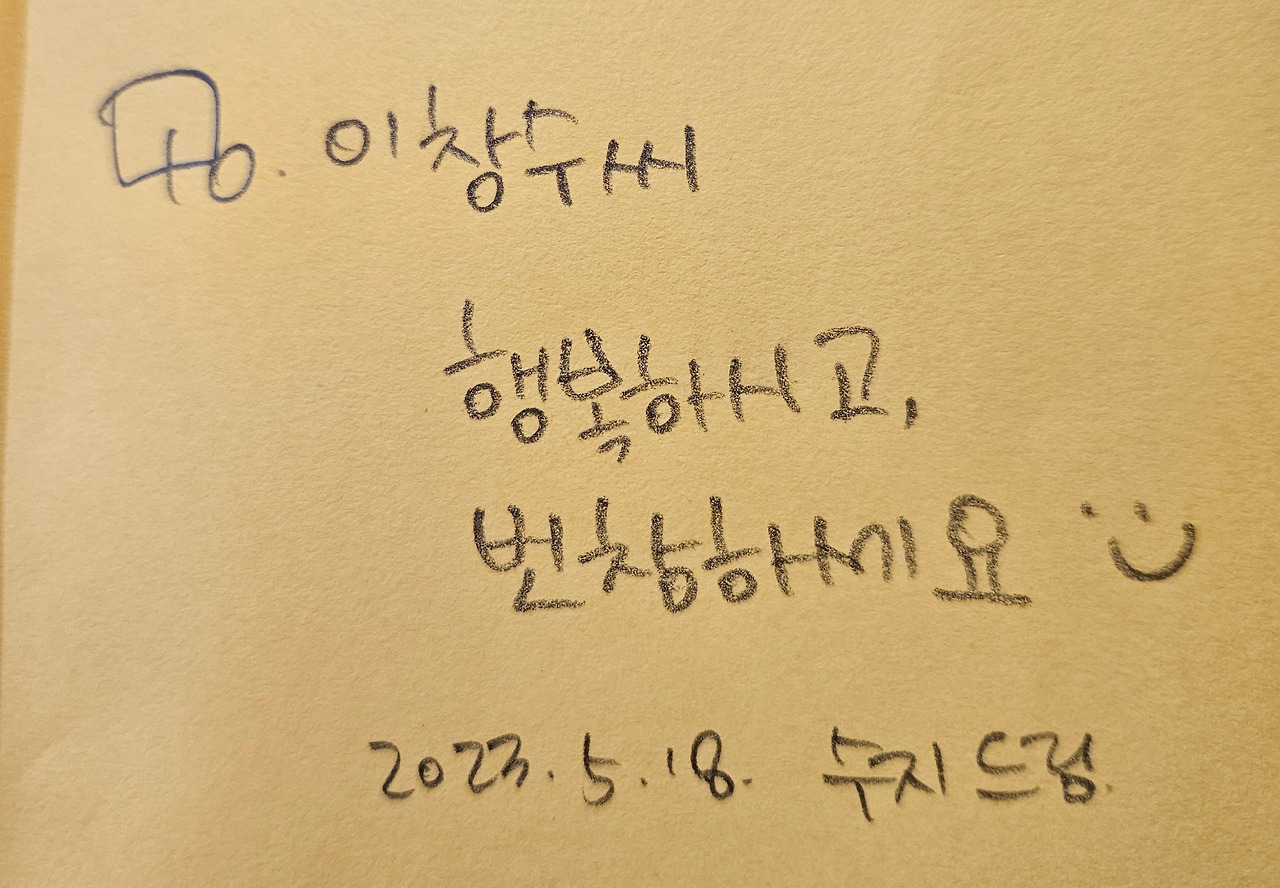 To. 이창수씨
행복하시고,
번창하세요 :)
2023.5.18. 수지드림.